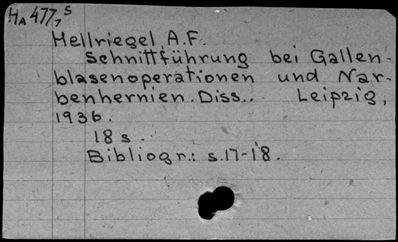 HA 477, S
Hellriegel A.F.
Schnittführung bei Gallen-
blasenoperationen und Nar-
benhernien. Diss.. Leipzig,
1936.
18 s.
Bibliogr.: s.17-18.